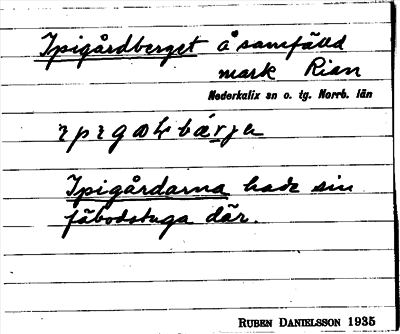 Ipigårdberget å samfälld
mark Rian
Nederkalix sn o. tg. Norrb. län
Ipigårdarna hade sin
fäbodstuga där.
RUBEN DANIELSSON 1935